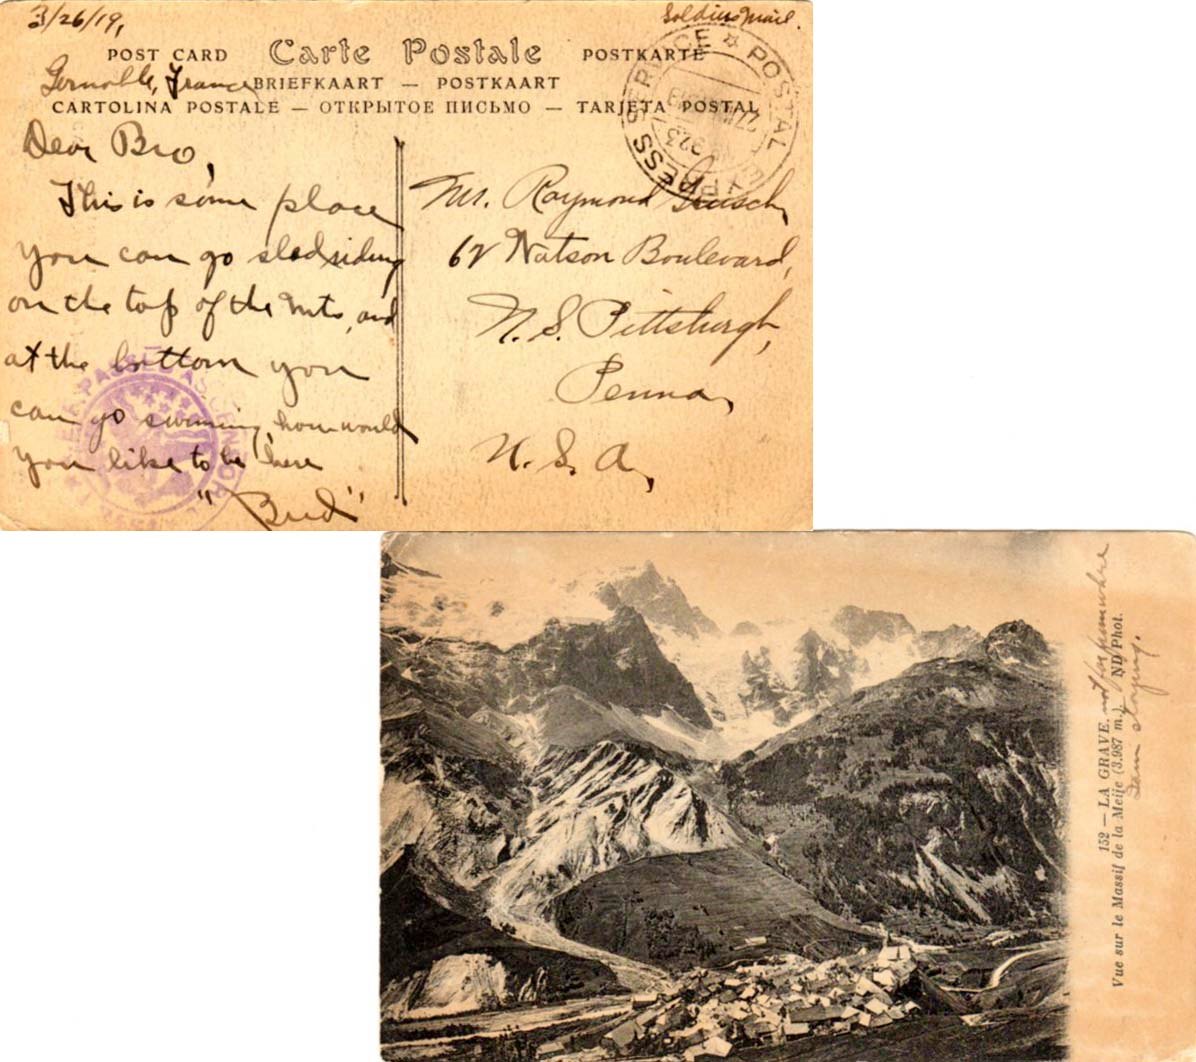 3/26/19,
Soldiers Mail.
POST CARD Carte Postale POSTKARTE
Gernoble, France
BRIEFKAART — POSTKAART
CARTOLINA POSTALE — ОТКРЫТОЕ ПИСЬМО — TARJETA POSTAL
POSTAL EXPRESS SERVICE
Dear Bro,
This is some place
you can go sledsiding
on the top of the mts, and
at the bottom you
can go swiming, how would
you like to be here
"Bud"
Mr. Raymond
62 Watson Boulevard,
N. S. Pittsburgh,
Penna,
U. S. A,
152 — LA GRAVE. not far from where
Vue sur le Massif de la Meije (3.987 m.) ND Phot.
I am staying.